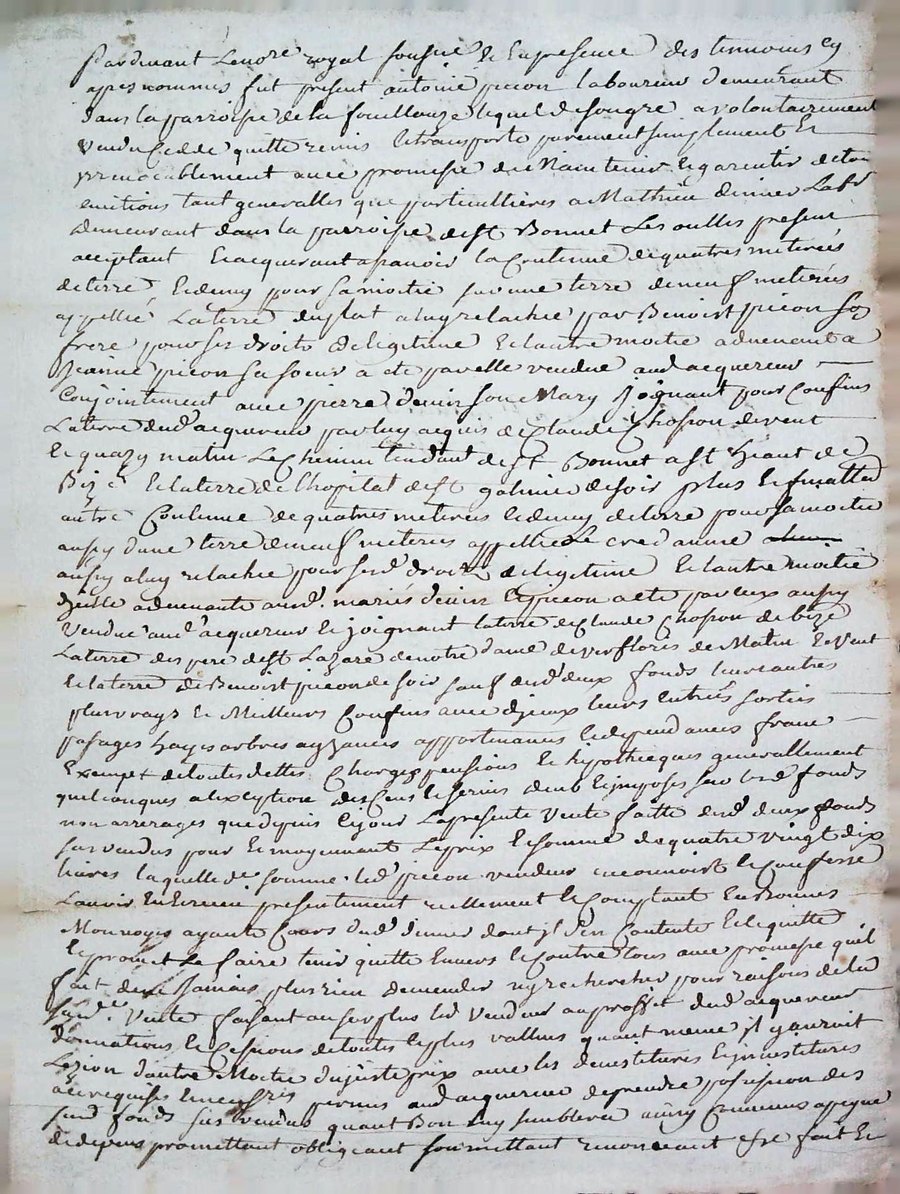 Pardevant Le no.re royal soussigné et En presence des temoins cy
apres nommes fut present antoine picon laboureur demeurant
dans la parroisse de la fouillouze lequel de son gre a volontairement
vendu cede quitte remis et transporte purement simplement et
yrrevocablement avec promesse de Maintenir et garentir de tou
evitions tant generalles que particullieres a Mathieu denier Lab.r
demeurant dans la parroisse de st Bonnet Les oulles present
acceptant et acquerant a sçavoir la Contenue de quatres meterées
de terre et demy pour sa moitié sur une terre de neuf meterées
appellié La terre du plat a luy relachée par Benoist picon son
frere pour ses droits de legitime et l'autre moitie advenant a
Jeanne picon sa soeur a ete par elle vendue aud acquereur
Conjointement avec pierre denier son Mary Joignant pour Confins
La terre dud acquereur par luy acquis de Claude Chosson de vent
et quazy matin Le Chemin tendant de st Bonnet a st héant de
Bize et la terre de l'hopital de st galmier de soir plus
autre Contenue de quatres meterées et demy de terre pour sa moitie
aussy d'une terre de neuf meterées appellée
aussy a luy relachée pour sesd droits de legitime et l'autre moitié
d'jcelle advenante aud. mariés denier et picon a ete par eux aussy
vendue aud acquereur et joignant la terre de Claude Chosson de bize
La terre des pere de st Lazare de notre dame de de Matin et vent
et la terre de Benoist picon de soir sauf desd deux fonds leurs autres
plus vrays et Meilleurs Confins avec d'jceux leurs Entrées sorties
passages hayes arbres ayzances appartenances et dependances franc
Exempt de toutes dettes Charges pensions et hypotheques generallement
quelconques a l'exception des Cens et servis deub et jmposés sur lesd fonds
non arrerages que depuis ce jour La presente vente faitte desd deux fonds
sus vendus pour et moyennant Le prix et somme de quatre vingt dix
livres laquelle de somme led picon vendeur reconnoist et Confesse
L'avoir En Receu presentement reellement et Comptant En Bonnes
Monnoyes ayants Cours dud denier dont jl s'en Contente et le quitte
et promet Le faire tenir quitte Envers et Contre tous avec promesse qu'il
fait de ne Jamais plus rien demander ny rechercher pour raisons de la
susd.e vente faisant au surplus led vendeur au proffit dud acquereur
donnations et Cessions de toutes et plus vallues quant meme jl y auroit
Lezion d'outre Moitie du juste prix avec les demistitures et jnvestitures
a ce requises et necess.res permis aud acquereur de prendre possession des
susd fonds sus vendus quant Bon luy semblera ainsy Convenus a peyne
de depens promettant obligeant soumettant renonceant &e fait et